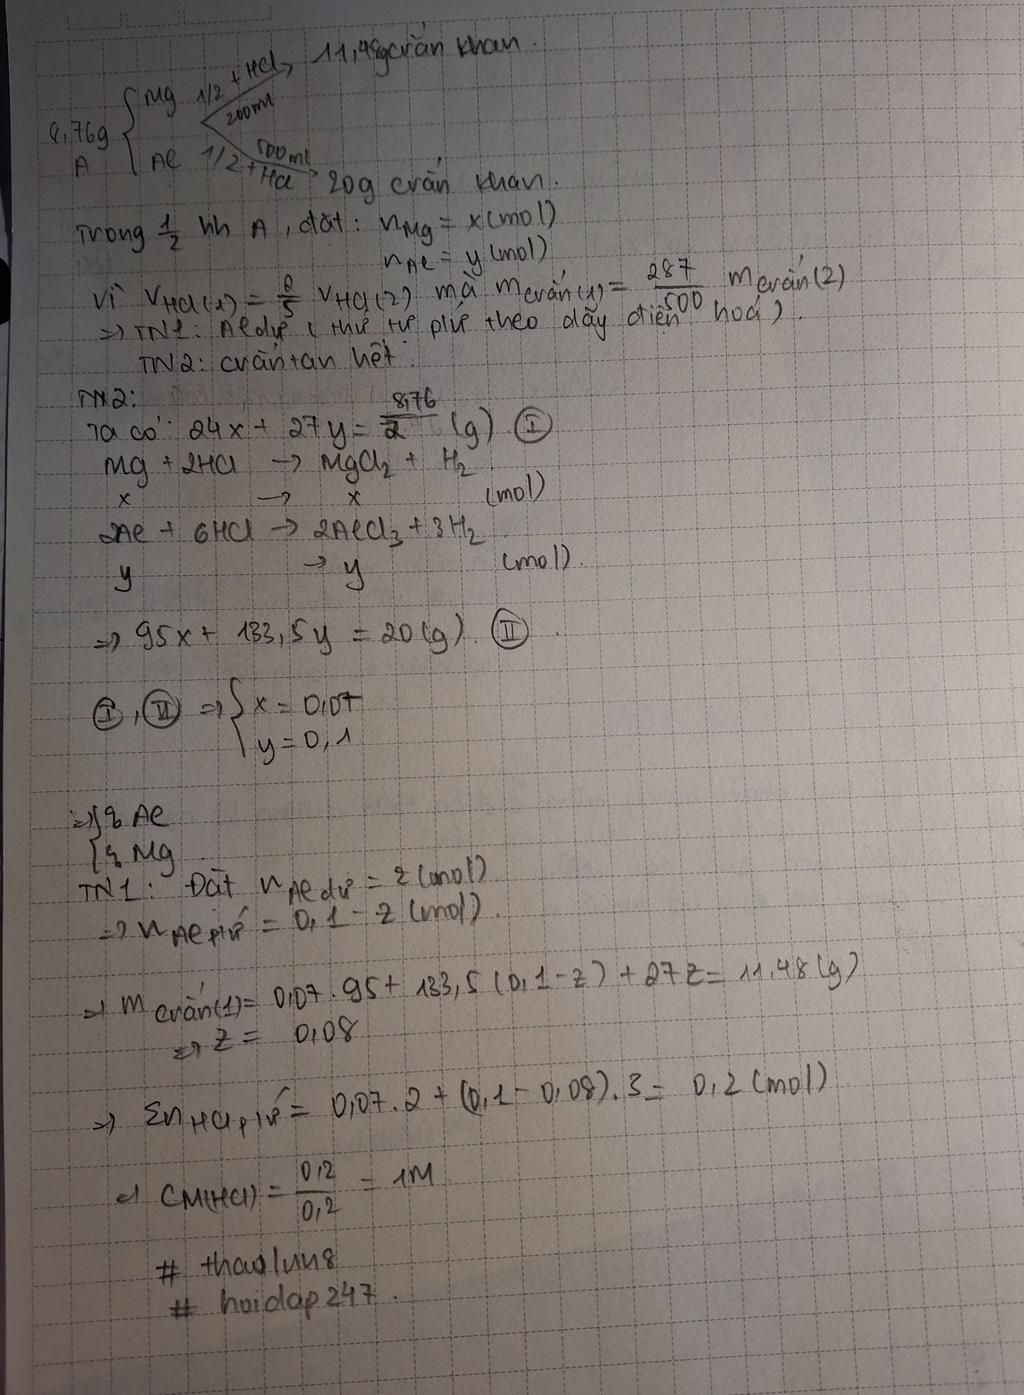 11,48g crắn khan.
8,76g A { Mg 1/2 + HCl 200ml
Al 1/2 + HCl 500ml
20g crắn khan.
Trong 1/2 hh A, đặt: nMg = x (mol)
nAl = y (mol)
Vì VHCl(1) = 2/5 VHCl(2) mà mcrắn(1) = 287/500 mcrắn(2)
=> TN1: Al dư (thứ tự pứ theo dãy điện hoá).
TN2: crắn tan hết.
TN2:
Ta có: 24x + 27y = 8,76/2 (g) (I)
Mg + 2HCl → MgCl2 + H2
x → x (mol)
2Al + 6HCl → 2AlCl3 + 3H2
y → y (mol).
=> 95x + 133,5y = 20 (g). (II)
(I), (II) => { x = 0,07
y = 0,1
=> { % Al
% Mg
TN1: Đặt nAl dư = z (mol)
=> nAl pứ = 0,1 - z (mol).
=> m crắn(1) = 0,07.95 + 133,5 (0,1 - z) + 27z = 11,48 (g)
=> z = 0,08
=> ΣnHCl pứ = 0,07.2 + (0,1 - 0,08).3 = 0,2 (mol)
=> CM(HCl) = 0,2/0,2 = 1M
# thaoluu8
# hoidap247.